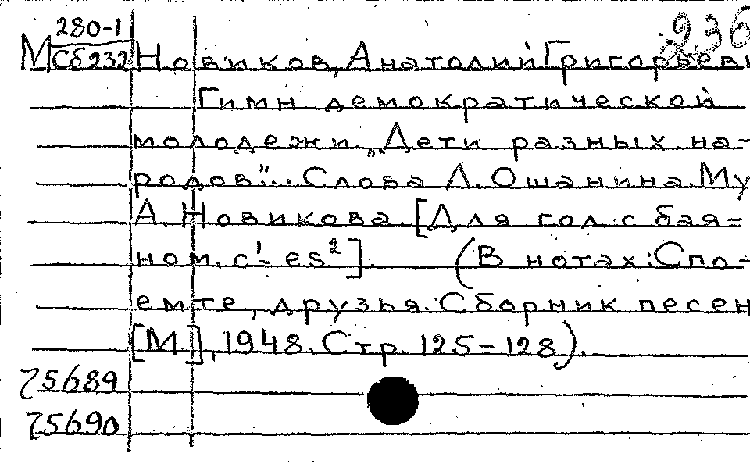 280-1 236
М Сб232 Новиков, Анатолий Григорьеви
Гимн демократической
молодежи „Дети разных на-
родов". Слова Л. Ошанина. Му
А. Новикова. [Для гол. с бая=
ном. c¹- es²] (В нотах: Спо-
емте, друзья. Сборник песен
[М.], 1948. Стр. 125-128).
75689
75690